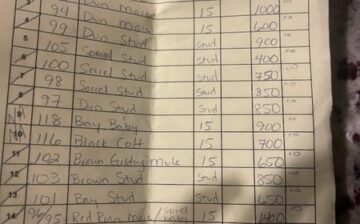 3 94 Dun Mare 15 1000
4 99 Dun Stud 15 600
5 105 Sorrel Stud Stud 900
6 100 Sorrel Stud Stud 400
7 98 Sorrel Stud Stud 750
8 97 Dun Stud Stud 850
9 118 Bay Baby 15 850
10 116 Black Colt 15 900
11 102 Brown Gelding mule 15 700
12 103 Brown Stud Stud 650
13 101 Bay Stud Stud 850
14 96/95 Red Roan Mare / Sorrel 15 650
1400